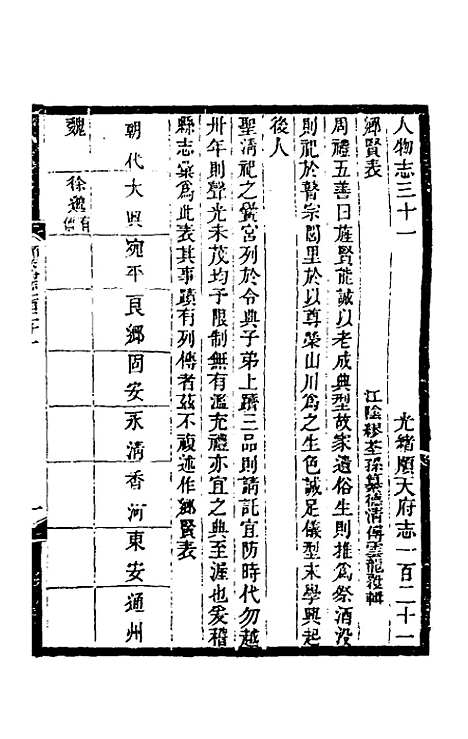 人物志三十一 光緒順天府志一百二十一
鄉賢表 江陰繆荃孫纂德清傅雲龍覆輯
周禮五善曰旌賢能誠以老成典型故家遺俗生則推爲祭酒沒
則祀於瞽宗閭里於以尊榮山川爲之生色誠足儀型末學興起
後人
聖淸祀之黌宮列於令典子弟上躋三品則請託宜防時代勿越
卅年則聲光未茂均予限制無有濫充禮亦宜之典至渥也爰稽
縣志彙爲此表其事蹟有列傳者茲不複述作鄉賢表
朝代 大興 宛平 良鄉 固安 永清 香河 東安 通州
魏 徐邈有傳